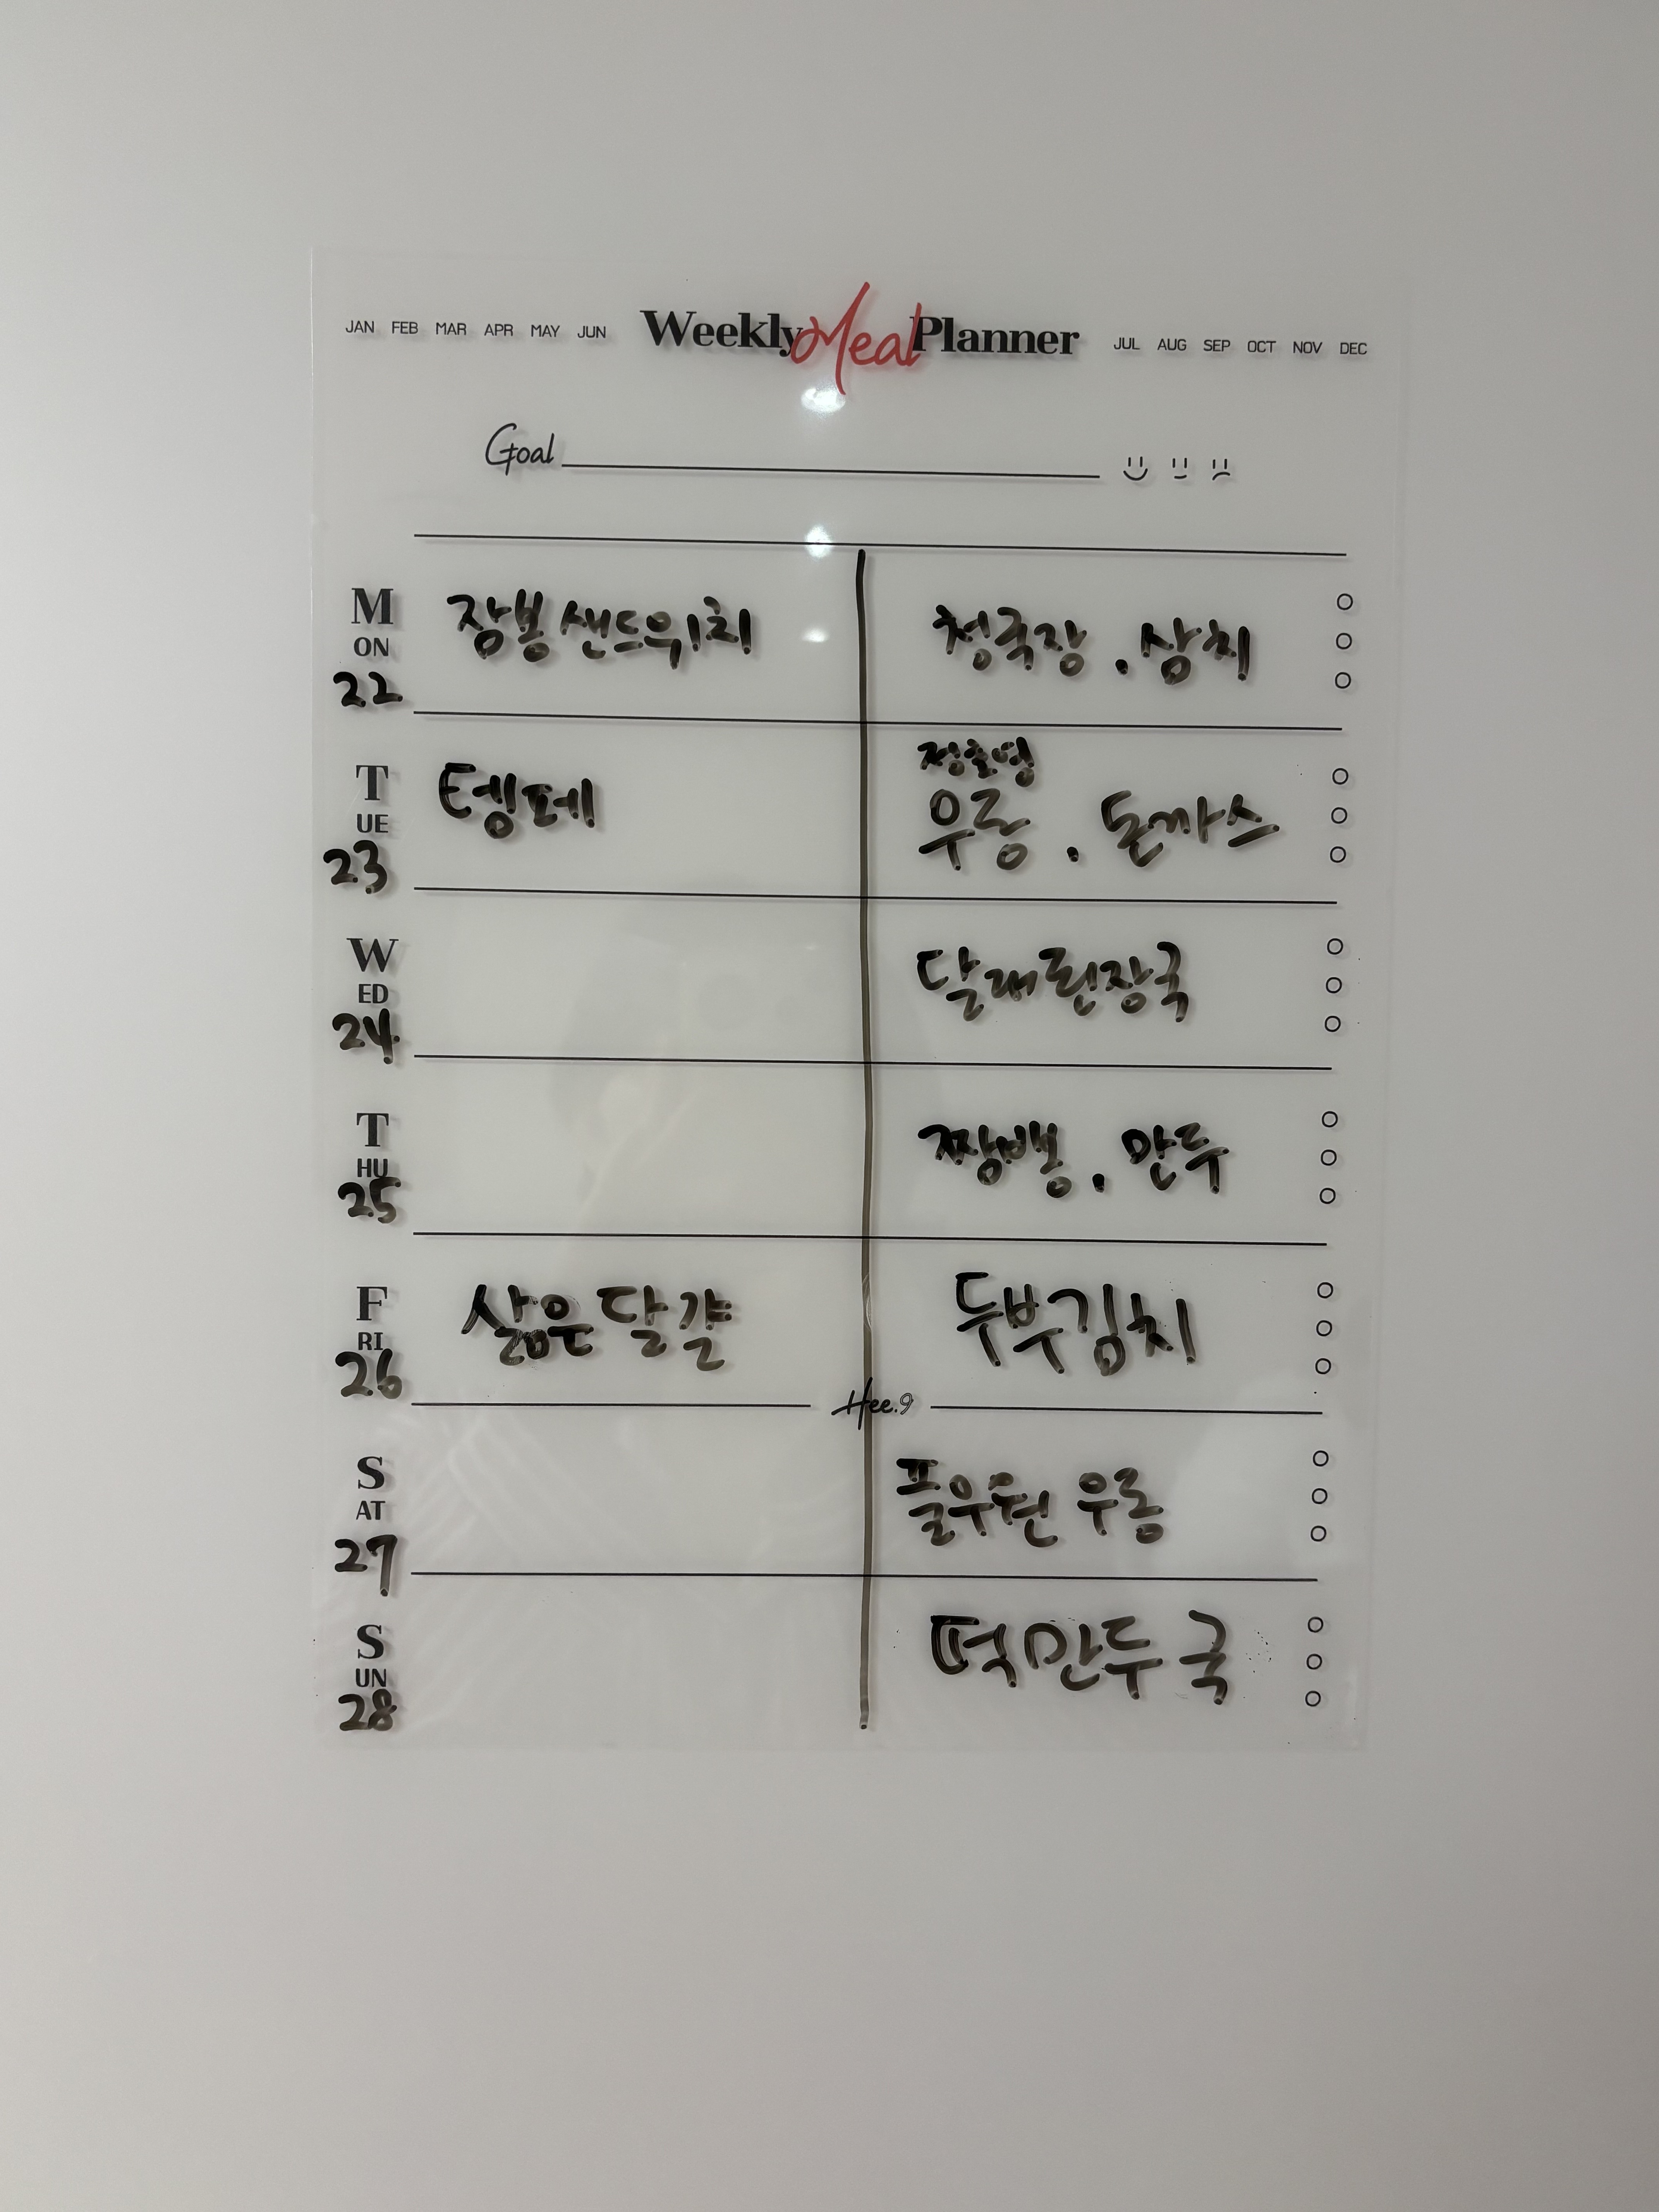 JAN FEB MAR APR MAY JUN Weekly Meal Planner JUL AUG SEP OCT NOV DEC
Goal
MON 22 장봉 샌드위치 청국장 . 상치
TUE 23 텡페 정호영 우동 . 돈까스
WED 24 달래된장국
THU 25 짬뽕 . 만두
FRI 26 삶은 달걀 두부김치
Hee.9
SAT 27 풀무원 우동
SUN 28 떡만두국